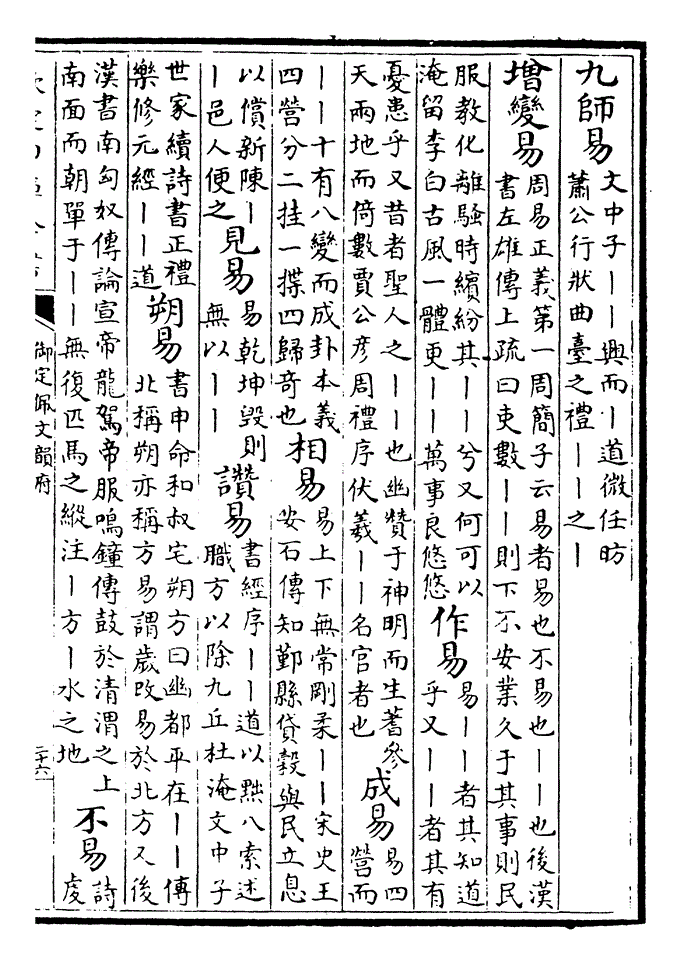 九師易
文中子——興而—道微任昉
蕭公行狀曲臺之禮——之—
増變易
周易正義第一周簡子云易者易也不易也——也後漢
書左雄傳上疏曰吏數——則下不安業久于其事則民
服教化離騷時繽紛其——兮又何可以
淹留李白古風一體更——萬事良悠悠
作易
易——者其知道
乎又——者其有
憂患乎又昔者聖人之——也幽贊于神明而生蓍參
天兩地而倚數賈公彦周禮序伏羲——名官者也
成易
易四
營而
——十有八變而成卦本義
四營分二挂一揲四歸奇也
相易
易上下無常剛柔——宋史王
安石傳知鄞縣貸穀與民立息
以償新陳—
—邑人便之
見易
易乾坤毀則
無以——
讚易
書經序——道以黜八索述
職方以除九丘杜淹文中子
世家續詩書正禮
樂修元經——道
朔易
書申命和叔宅朔方曰幽都平在——傳
北稱朔亦稱方易謂歲改易於北方又後
漢書南匈奴傳論宣帝龍駕帝服鳴鐘傳鼓於清渭之上
南面而朝單于——無復匹馬之縱注—方—水之地
不易
詩
虔
御定佩文韻府
二十六